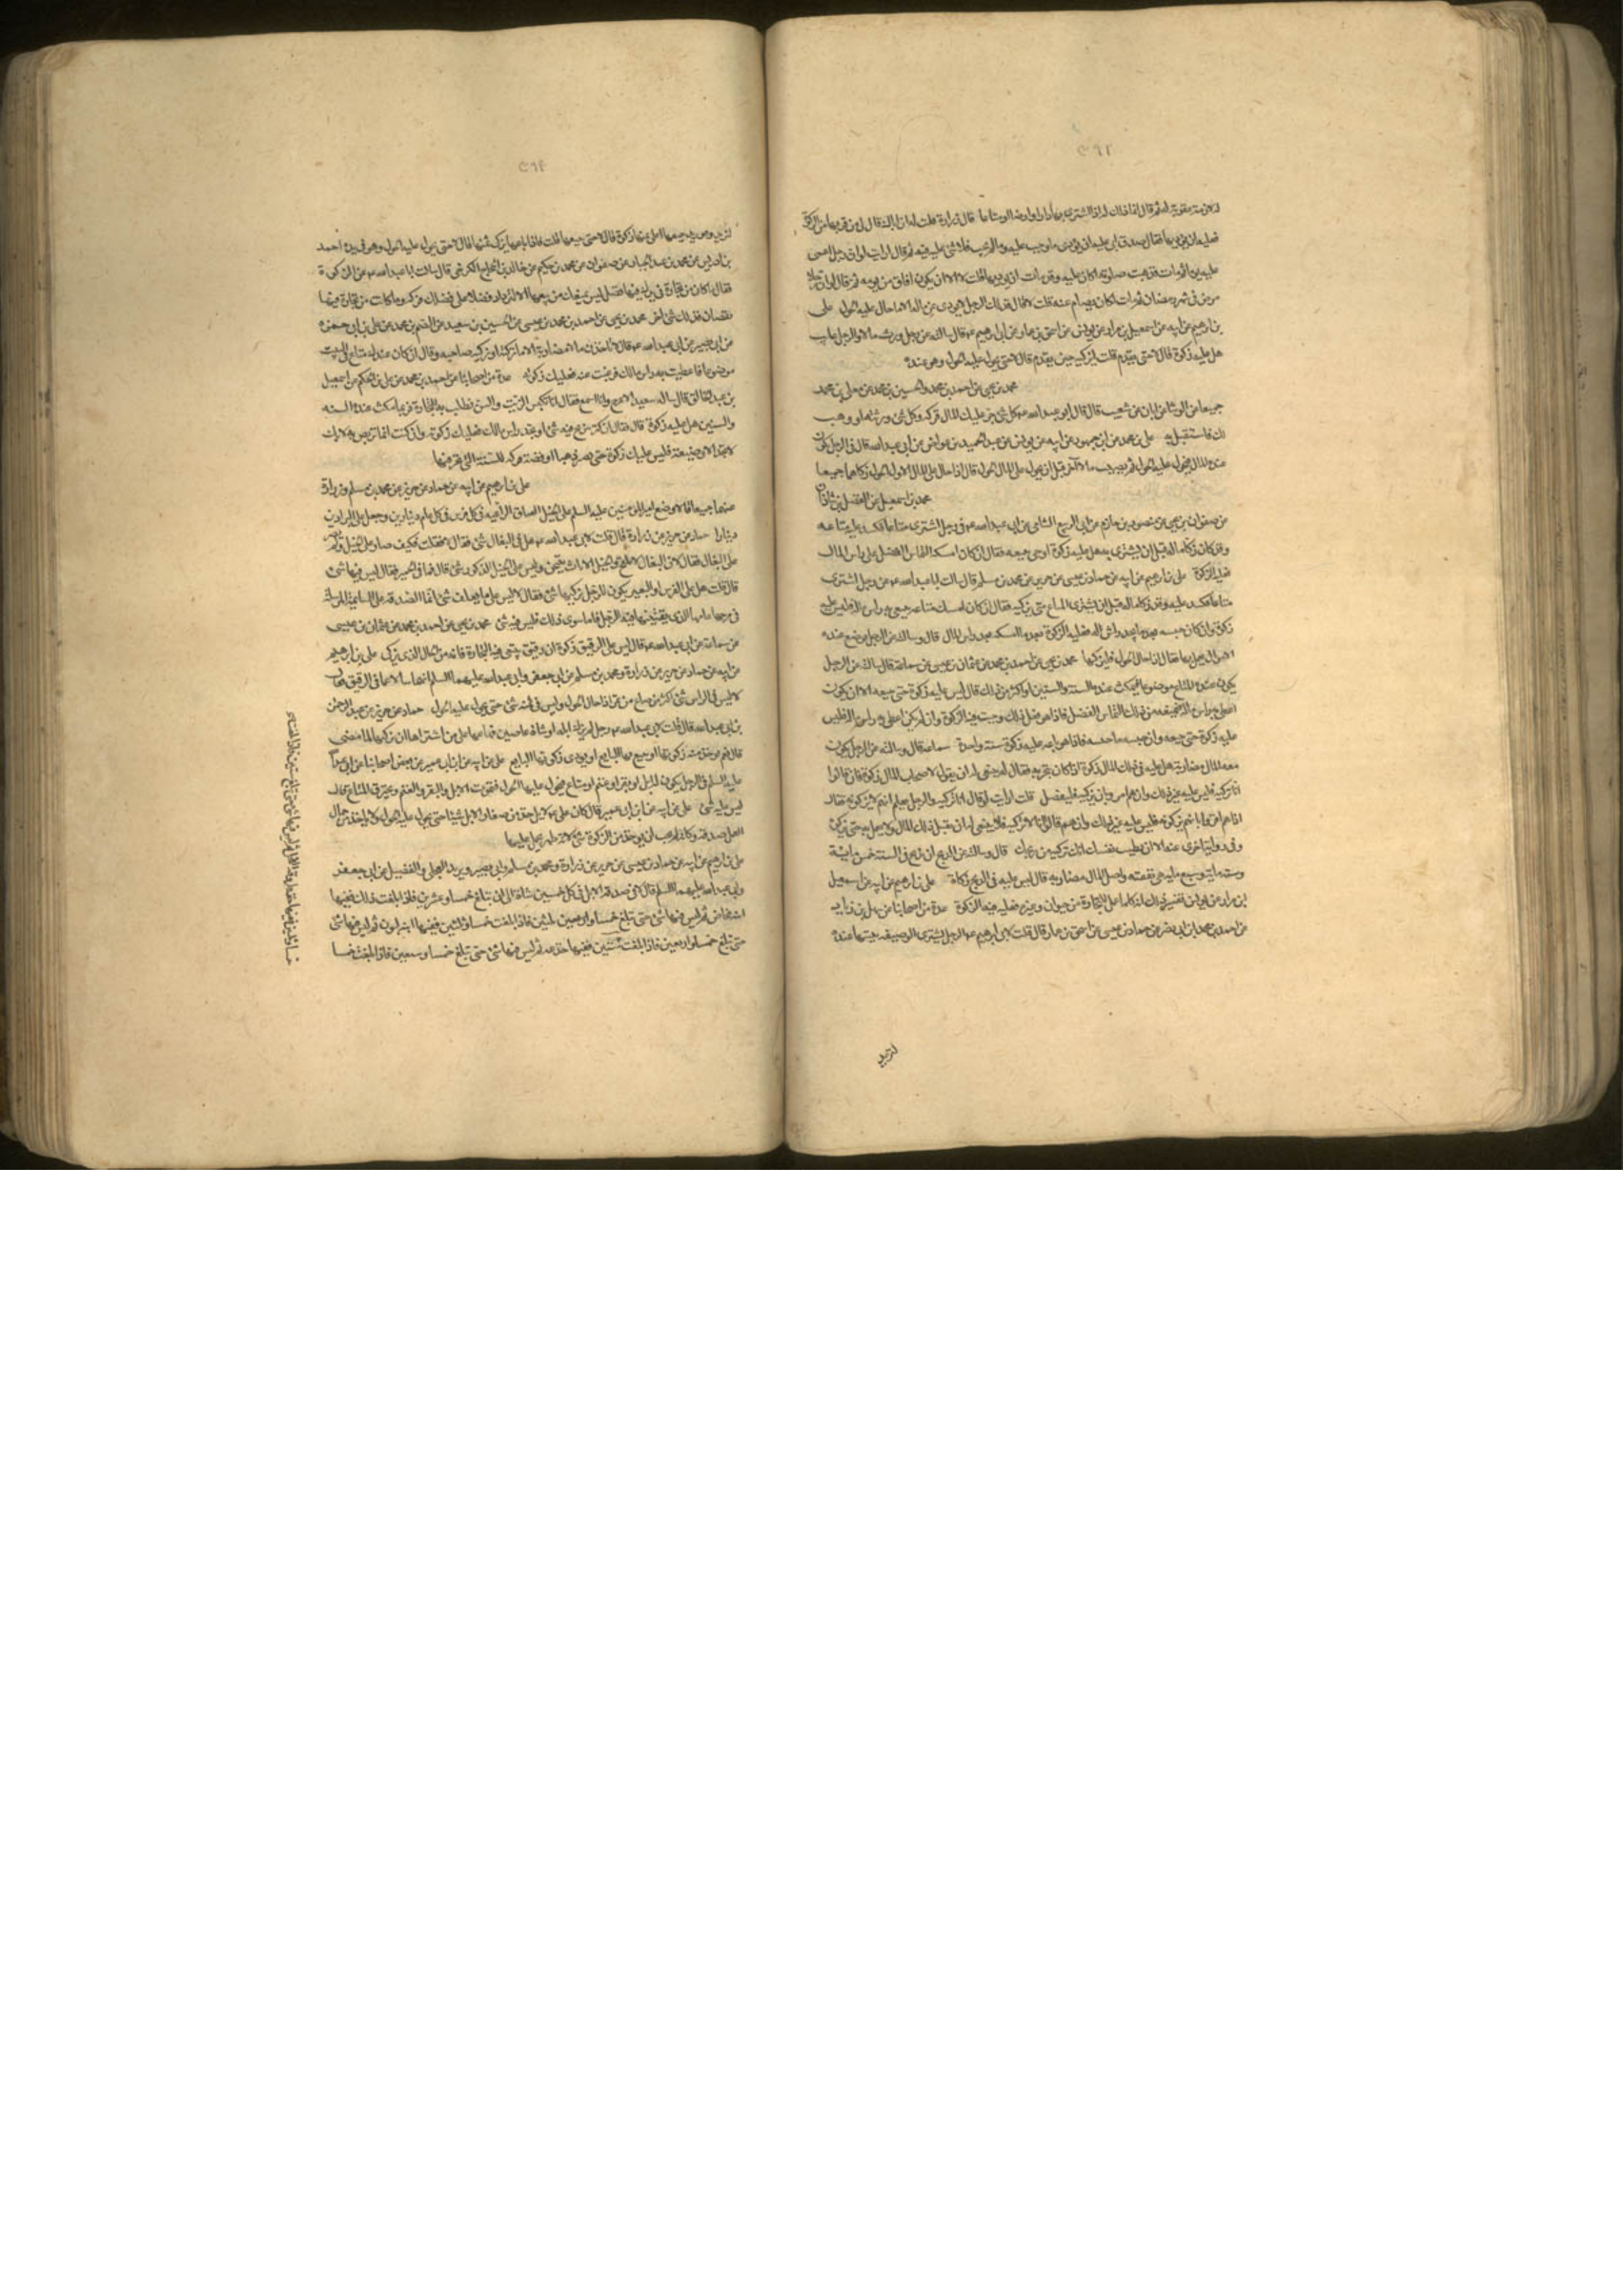 لازمة عقوبة له ثم قال انما ذلك له اذا اشترى بها دارا او ارضا او متاعا قال زرارة قلت له ان اباك قال لي من فر بها من الزكوة
فعليه ان يؤديها فقال صدق ابي عليه ان يؤدي ما وجب عليه وما لم يجب فلا شئ عليه فيه ثم قال ارايت لو ان رجلا اغمى
عليه يوما ثم مات فذهبت صلوته اكان عليه وقد مات ان يؤديها قلت لا الا ان يكون افاق من يومه ثم قال لو ان رجلا
مرض في شهر رمضان ثم مات اكان يصام عنه قلت لا قال فكذلك الرجل لا يؤدي عن ماله الا ما حال عليه الحول على
بن ابرهيم عن ابيه عن اسمعيل بن مرار عن يونس عن اسحق بن عمار عن ابي ابرهيم ع قال سالته عن رجل ورث مالا والرجل غايب
هل عليه زكوة قال لا حتى يقدم قلت ايزكيه حين يقدم قال لا حتى يحول عليه الحول وهو عنده
محمد بن يحيى عن احمد بن محمد والحسين بن محمد عن معلى بن محمد
جميعا عن الوشا عن ابان عن شعيب قال قال ابو عبد الله ع كل شئ جر عليك المال فزكه وكل شئ ورثته او وهب
لك فاستقبل به على بن محمد عن ابن جمهور عن ابيه عن يونس عن عبد الحميد بن عواض عن ابي عبد الله قال في الرجل يكون
عنده المال فيحول عليه الحول ثم يصيب مالا آخر قبل ان يحول على المال الحول قال اذا حال على المال الاول الحول زكاهما جميعا
محمد بن اسمعيل عن الفضل بن شاذان
عن صفوان بن يحيى عن منصور بن حازم عن ابي الربيع الشامي عن ابي عبد الله ع في رجل اشترى متاعا فكسد عليه متاعه
وقد كان زكى ماله قبل ان يشترى به هل عليه زكوة او حتى يبيعه فقال ان كان امسكه التماس الفضل على راس المال
فعليه الزكوة على بن ابرهيم عن ابيه عن حماد بن عيسى عن حريز عن محمد بن مسلم قال سالت ابا عبد الله ع عن رجل اشترى
متاعا فكسد عليه وقد زكى ماله قبل ان يشترى المتاع متى يزكيه فقال ان كان امسك متاعه يبتغي به راس ماله فليس عليه
زكوة وان كان حبسه بعد ما يجد راس ماله فعليه الزكوة بعد ما امسكه بعد راس المال قال وسالته عن الرجل يوضع عنده
الاموال يعمل بها فقال اذا حال الحول فليزكها محمد بن يحيى عن احمد بن محمد عن عثمان بن عيسى عن سماعة قال سالته عن الرجل
يكون عنده المتاع موضوعا فيمكث عنده السنة والسنتين او اكثر من ذلك قال ليس عليه زكوة حتى يبيعه الا ان يكون
اعطى به راس ماله فيمنعه من ذلك التماس الفضل فاذا هو فعل ذلك وجبت فيه الزكوة وان لم يكن اعطى به راس ماله فليس
عليه زكوة حتى يبيعه وان حبسه ما حبسه فاذا هو باعه فانما عليه زكوة سنة واحدة سماعة قال وسالته عن الرجل يكون
معه المال مضاربة هل عليه في ذلك المال زكوة اذا كان يتجر به فقال ينبغي له ان يقول لاصحاب المال زكوه فان قالوا
انا نزكيه فليس عليه غير ذلك وان هم امروه بان يزكيه فليفعل قلت ارايت لو قالوا انا نزكيه والرجل يعلم انهم لا يزكونه فقال
اذا هم اقروا بانهم يزكونه فليس عليه غير ذلك وان هم قالوا انا لا نزكيه فلا ينبغي له ان يقبل ذلك المال ولا يعمل به حتى يزكيه
وفي رواية اخرى عنه الا ان تطيب نفسك ان تزكيه من ربحك قال وسالته عن الربح ان ربح في السنة خمس مائة
وستمائة وسبع مائة هي نفقته واصل المال مضاربة قال ليس عليه في الربح زكاة على بن ابرهيم عن ابيه عن اسمعيل
بن مرار عن يونس انه كل ما عمل للتجارة من حيوان وغيره فعليه فيه الزكوة عدة من اصحابنا عن سهل بن زياد
عن احمد بن محمد بن ابي نصر عن حماد بن عيسى عن اسحق بن عمار قال قلت لابي ابرهيم ع الرجل يشترى الوصيفة يثبتها عنده
لتزيد
لتزيد وهو يريد بيعها اعلى ثمنها زكوة قال لا حتى يبيعها قلت فاذا باعها يزكى ثمنها قال لا حتى يحول عليه الحول وهو في يده احمد
بن ادريس عن محمد بن عبد الجبار عن صفوان عن محمد بن حكيم عن خالد بن الحجاج الكرخي قال سالت ابا عبد الله ع عن الزكوة
فقال ما كان من تجارة في يدك فيها فضل ليس يمنعك من بيعها الا لتزداد فضلا على فضلك فزكه وما كانت من تجارة فيها
نقصان فذلك شئ اخر محمد بن يحيى عن احمد بن محمد بن عيسى عن الحسين بن سعيد عن القسم بن محمد عن على بن ابي حمزة
عن ابي بصير عن ابي عبد الله ع قال لا تاخذن مالا مضاربة الا مالا تزكيه او يزكيه صاحبه وقال ان كان عندك متاع في البيت
موضوع فاعطيت به راس مالك فرغبت عنه فعليك زكوته عدة من اصحابنا عن احمد بن محمد عن على بن الحكم عن اسمعيل
بن عبد الخالق قال ساله سعيد الاعرج وانا اسمع فقال انا نكبس الزيت والسمن نطلب به التجارة فربما مكث عندنا السنة
والسنتين هل عليه زكوة قال فقال ان كنت تربح فيه شئ او يجد راس مالك فعليك زكوة وان كنت انما تربص به لانك
لا تجد الا وضيعة فليس عليك زكوة حتى يصير ذهبا او فضة فزكه للسنة التي تخرج فيها
على بن ابرهيم عن ابيه عن حماد عن حريز عن محمد بن مسلم وزرارة
عنهما جميعا قالا وضع امير المؤمنين عليه السلم على الخيل العتاق الراعية في كل فرس في كل عام دينارين وجعل على البراذين
دينارا حماد عن حريز عن زرارة قال قلت لابي عبد الله ع هل في البغال شئ فقال لا فقلت فكيف صار على الخيل ولم يصر
على البغال فقال لان البغال لا تلقح والخيل الاناث ينتجن وليس على الخيل الذكور شئ قال قلت فما في الحمير فقال ليس فيها شئ
قال قلت هل على الفرس او البعير يكون للرجل يركبها شئ فقال لا ليس على ما يعلف شئ انما الصدقة على السائمة المرسلة
في مرجها عامها الذي يقتنيها فيه الرجل فاما ما سوى ذلك فليس فيه شئ محمد بن يحيى عن احمد بن محمد عن عثمان بن عيسى
عن سماعة عن ابي عبد الله ع قال ليس على الرقيق زكوة الا رقيق يبتغي فيه التجارة فانه من المال الذي يزكى على بن ابرهيم
عن ابيه عن حماد عن حريز عن زرارة ومحمد بن مسلم عن ابي جعفر وابي عبد الله عليهما السلم انهما سئلا عما في الرقيق فقالا
لا ليس في الراس شئ اكثر من صاع من تمر اذا حال الحول وليس في ثمنه شئ حتى يحول عليه الحول حماد عن حريز عن عبد الرحمن
بن ابي عبد الله قال قلت لابي عبد الله ع رجل لم يزك ابله او شاته عامين فباعها على من اشتراها ان يزكيها لما مضى
قال نعم يؤخذ منه زكوتها ويتبع بها البايع او يؤدى زكوتها البايع على عن ابيه عن ابن ابي عمير عن بعض اصحابنا عن ابي عبد الله
عليه السلم في الرجل يكون له ابل او بقر او غنم او متاع فيحول عليها الحول فتموت الابل والبقر والغنم ويحترق المتاع قال
ليس عليه شئ على عن ابيه عن ابن ابي عمير قال كان على ع لا ياخذ من صغار الابل شيئا حتى يحول عليه الحول ولا ياخذ من جمال
العمل صدقة وكانه لم يجب ان يؤخذ من الذكورة شئ لانه ظهر يحمل عليها
على بن ابرهيم عن ابيه عن حماد بن عيسى عن حريز عن زرارة ومحمد بن مسلم وابي بصير وبريد العجلي والفضيل عن ابي جعفر
وابي عبد الله عليهما السلم قالا في صدقة الابل في كل خمس شاة الى ان تبلغ خمسا وعشرين فاذا بلغت ذلك ففيها
ابنة مخاض ثم ليس فيها شئ حتى تبلغ خمسا وثلثين فاذا بلغت خمسا وثلثين ففيها ابنة لبون ثم ليس فيها شئ
حتى تبلغ خمسا واربعين فاذا بلغت ستين ففيها حقة ثم ليس فيها شئ حتى تبلغ خمسا وسبعين فاذا بلغت خمسا